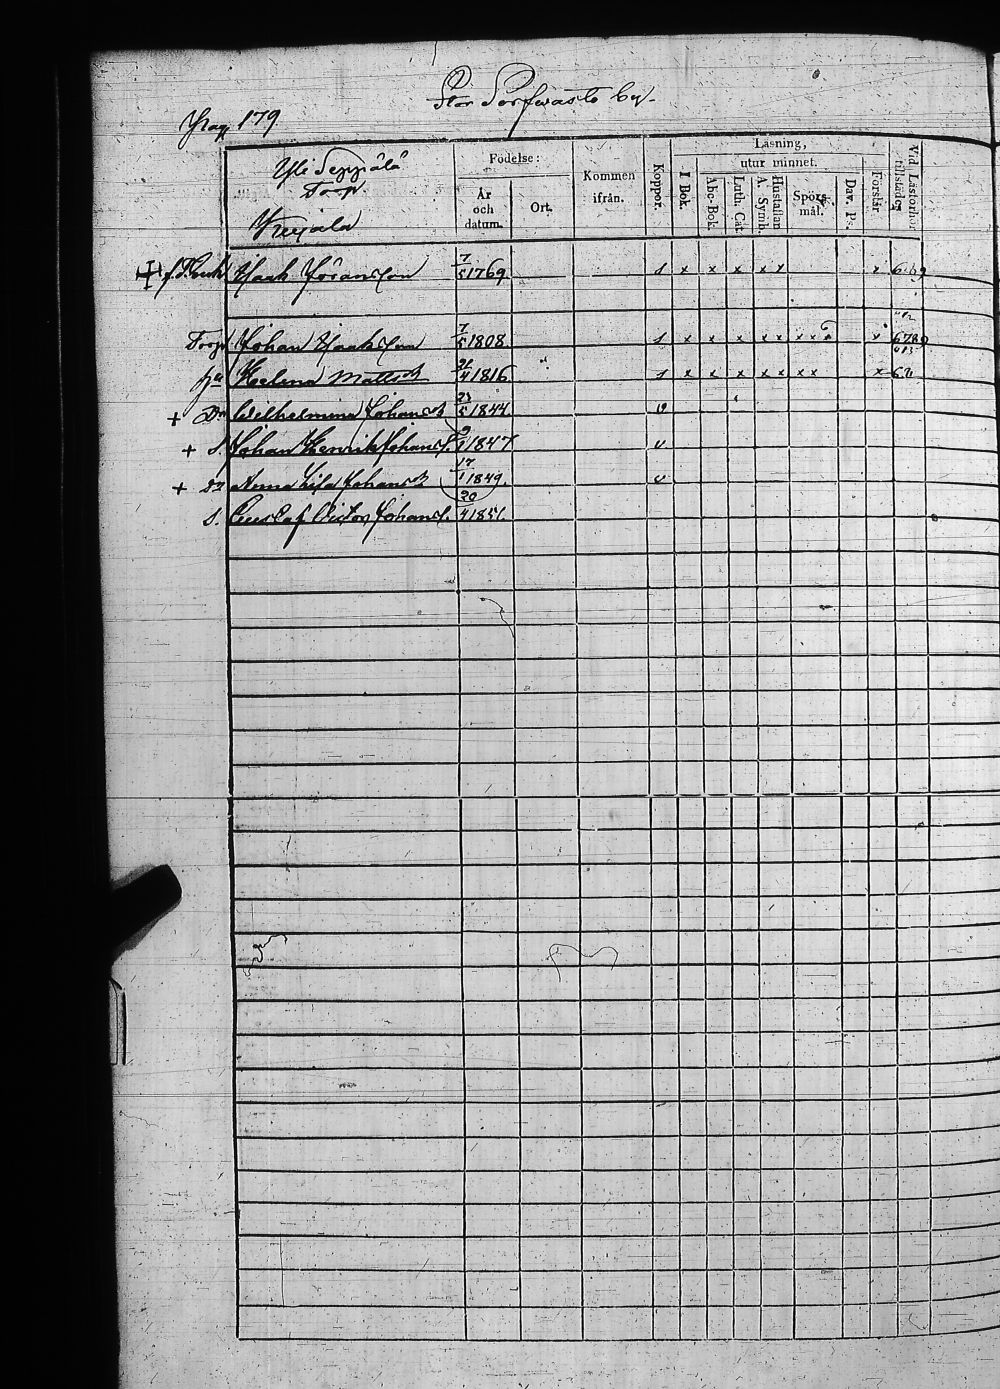 Stor Sorfwasto by.
Pag 179
Yli Seppälä
Torp.
Födelse:
År och datum.
Ort.
Kommen ifrån.
Koppor.
Läsning,
utur minnet.
I Bok.
Abc-Bok
Luth. Cat
A. Symb.
Hustaflan
Spörsmål.
Dav. P.
Förstår
Vid Läsförhör tillstädes
Isak Göransson 7/5 1769 s x x x x x x
Torp. Johan Isaksson 7/5 1808. s x x x x x x x x
hu Helena Mattsd 21/4 1816 s x x x x x x x x
+ Dr Wilhelmina Johansd 23/5 1844 v
+ S. Johan Henrik Johanss. 1847 v
+ Dr Anna Lisa Johansd 17/1 1849. v
S. Gustaf Victor Johanss. 20/4 1851.